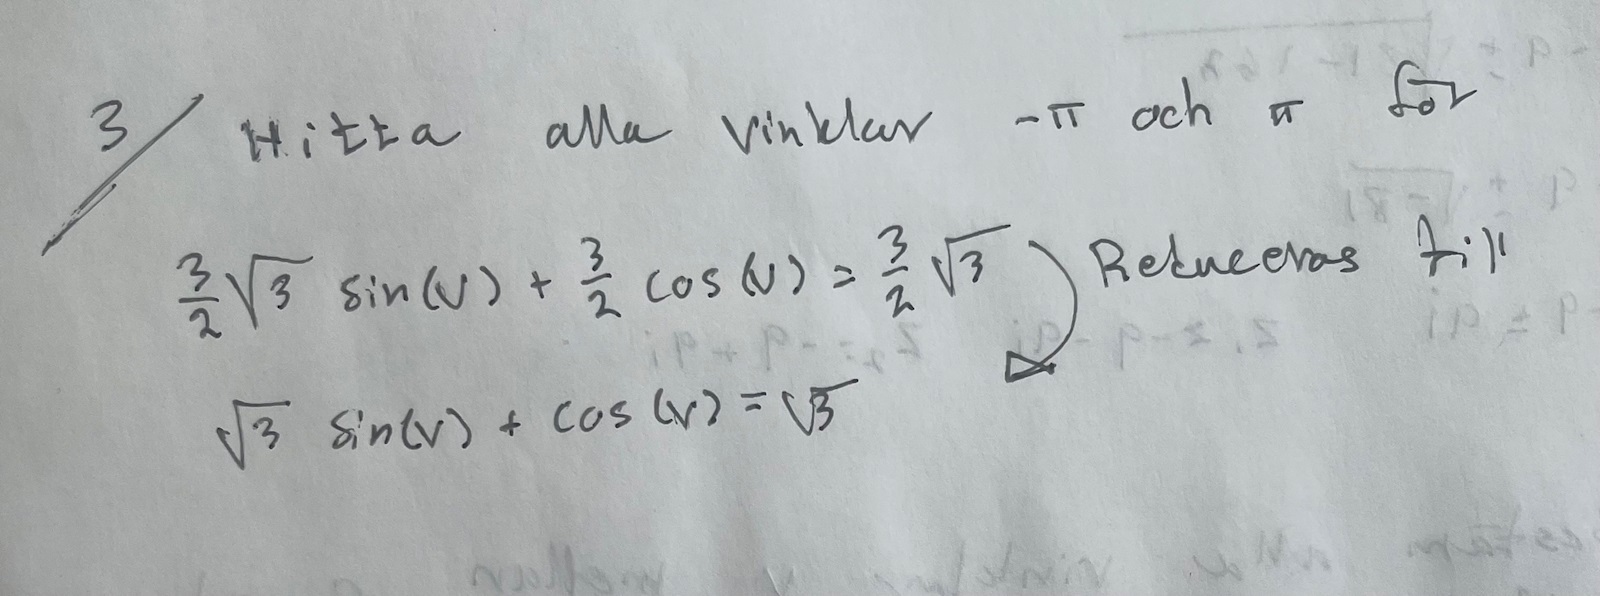 3/ Hitta alla vinklar -π och π för
3/2 √3 sin(v) + 3/2 cos(v) = 3/2 √3 Reduceras till
√3 sin(v) + cos(v) = √3